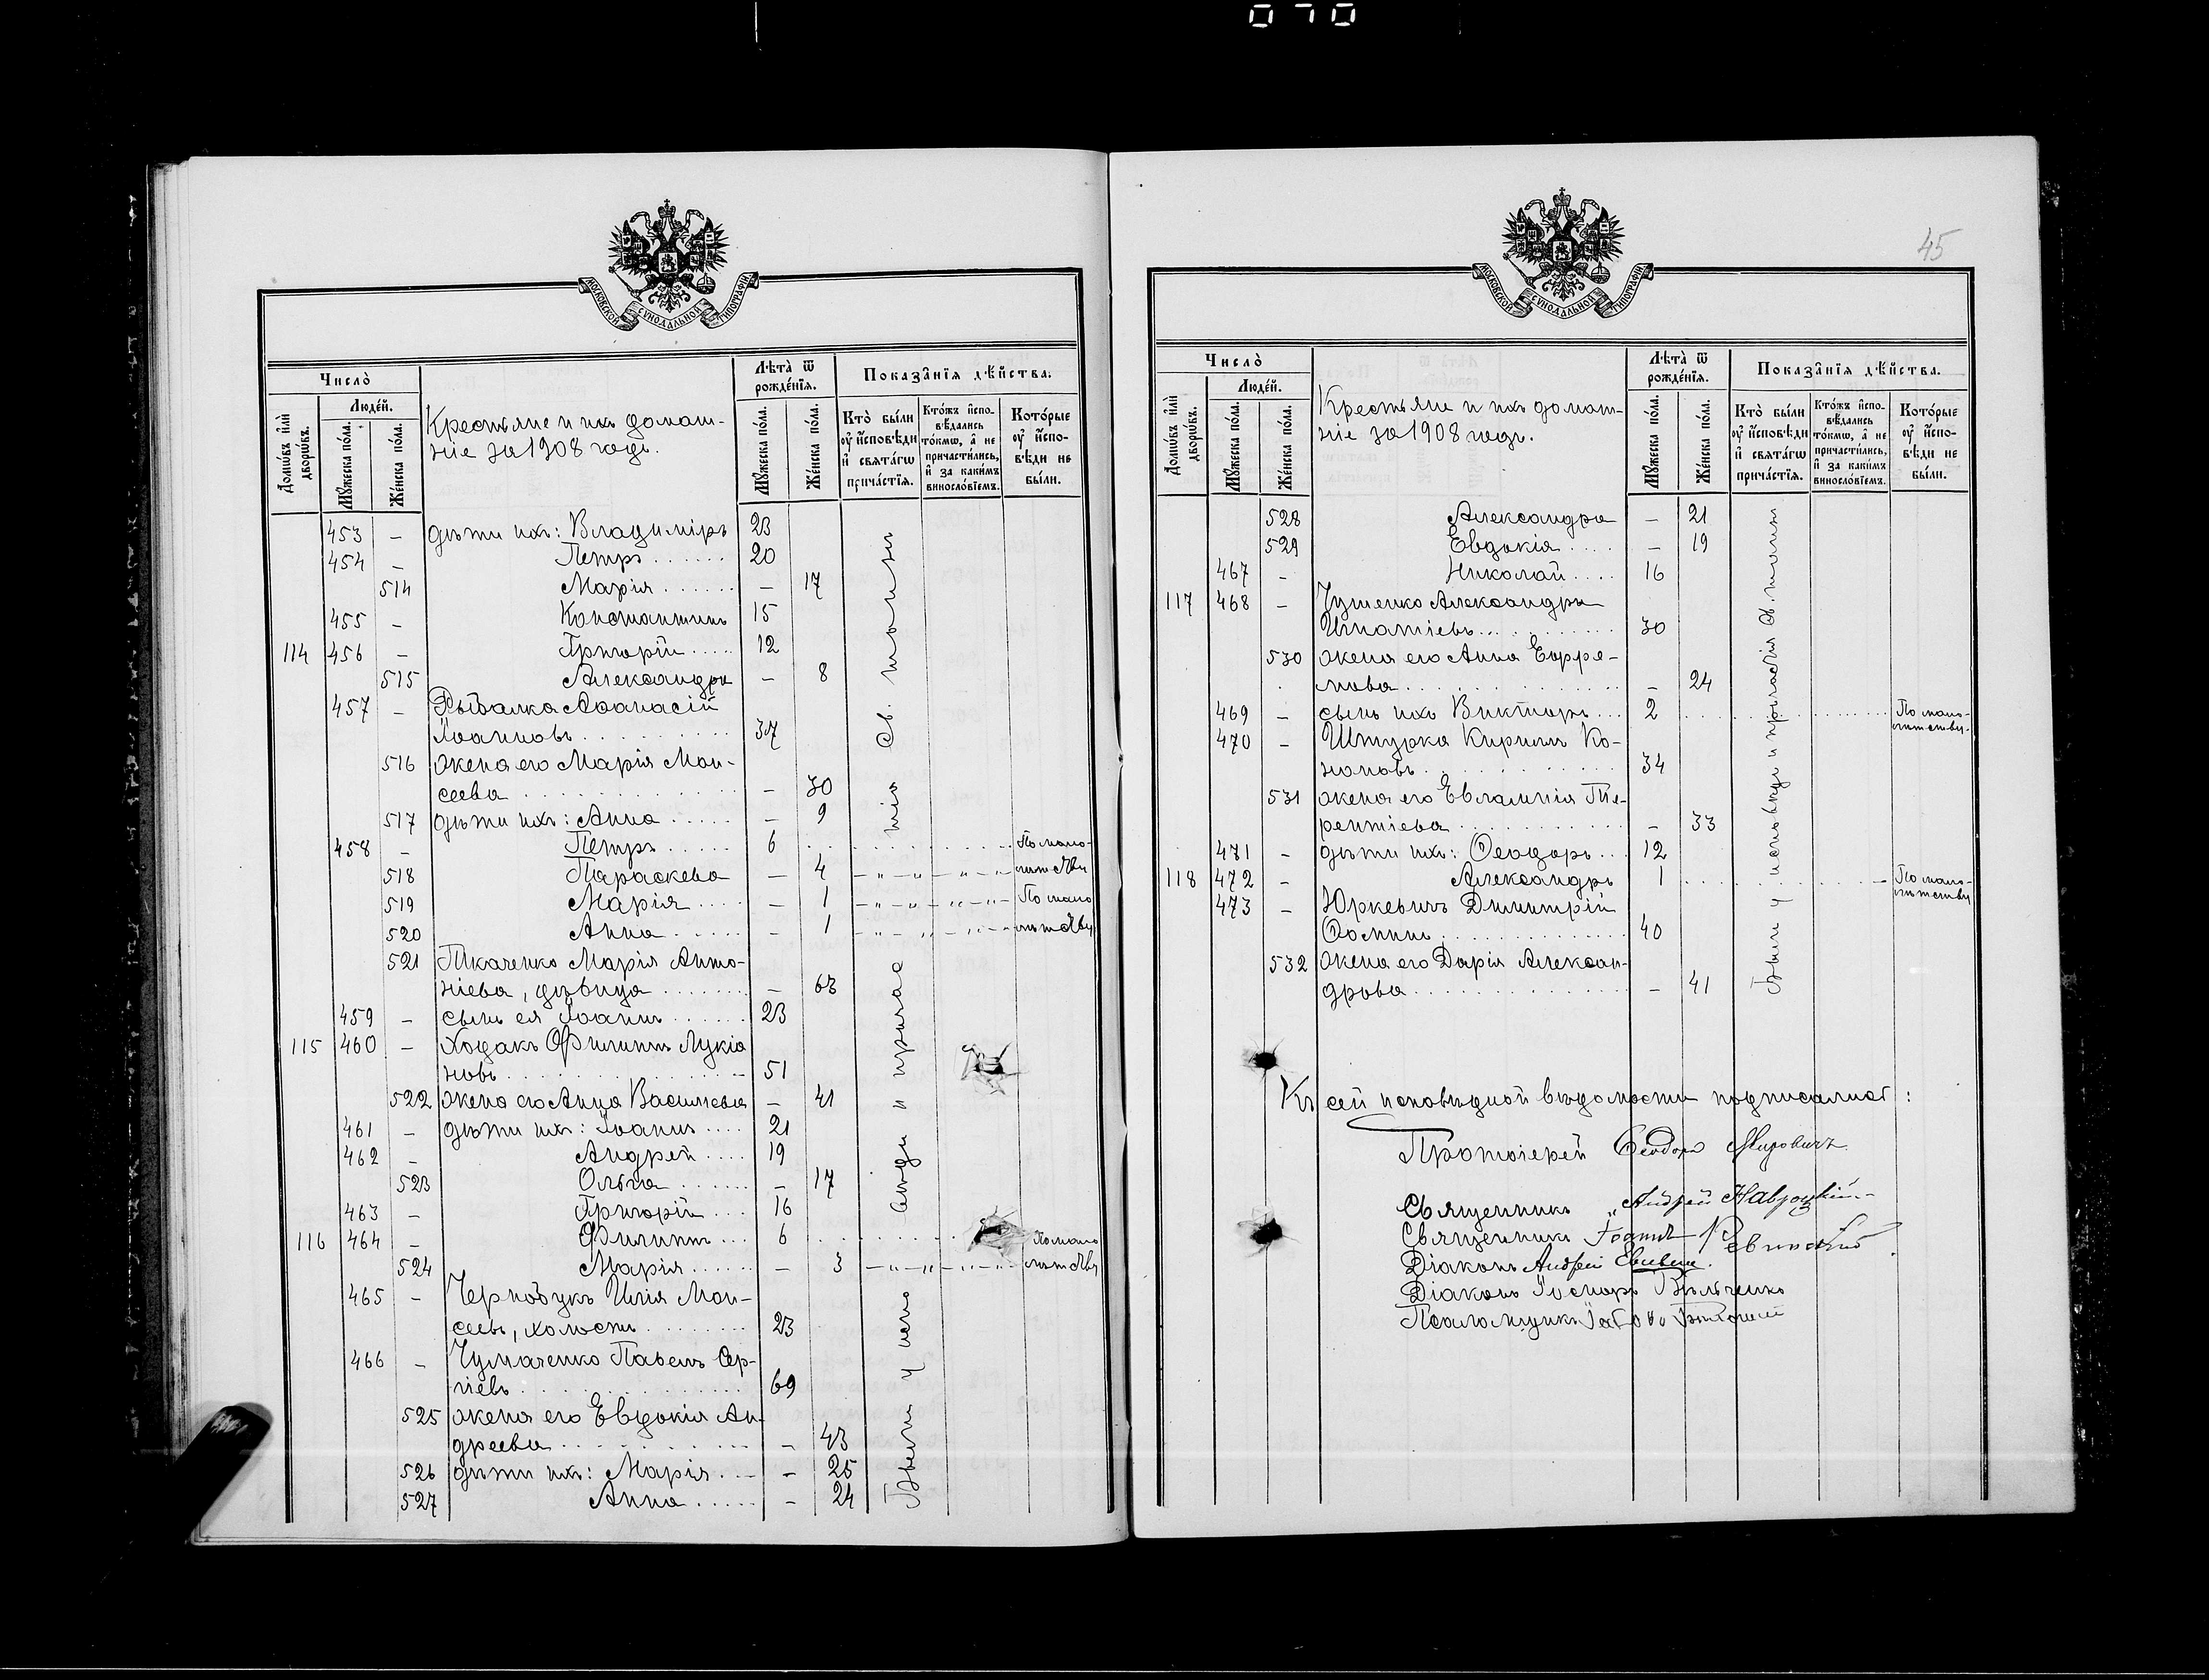 070
МОСКОВСКОЙ СѴНОДАЛЬНОЙ ТИПОГРАФІИ
Число̀
Домѡ́въ и҆лѝ дворѡ́въ.
Люде́й.
Мꙋ́жеска по́ла.
Же́нска по́ла.
Крестьяне и ихъ домаш-
ніе за 1908 годъ.
Лѣта̀ ѿ рожде́нїѧ.
Мꙋ́жеска по́ла.
Же́нска по́ла.
Показа̑нїѧ дѣ́йства.
Кто̀ бы́ли оу҆ и҆сповѣди и҆ свѧта́гѡ прича́стїѧ.
Кто́жъ и҆сповѣ́дались то́кмѡ, а҆ не причасти́лись, и҆ за каки́мъ виносло́вїемъ.
Кото́рые оу҆ и҆сповѣди не бы́ли.
453 - дѣти ихъ: Владиміръ 23
454 - Петръ 20
514 Марія - 17
455 - Константинъ 15
114 456 - Григорій 12
515 Александра - 8
457 - Рыбалка Аѳанасій
Іоанновъ 37
516 жена его Марія Мои-
сеева - 30
517 дѣти ихъ: Анна - 9
458 - Петръ 6 По мало-
518 Параскева - 4 -„-„-„-„- лѣтству
519 Марія - 1 -„-„-„-„- По мало
520 Анна - 1 -„-„-„-„- лѣтству
521 Ткаченко Марія Анто-
ніева, дѣвица - 63
459 - сынъ ея Іоаннъ 23
115 460 - Ходакъ Филиппъ Лукіа
новъ 51
522 жена его Анна Васильева - 41
461 - дѣти ихъ: Іоаннъ 21
462 - Андрей 19
523 Ольга - 17
463 - Григорій 16
116 464 - Филиппъ 6 По мало
524 Марія - 3 -„-„-„-„- лѣтству
465 - Чернобукъ Илія Мои-
сеевъ, холостъ 23
466 - Чумаченко Павелъ Сер-
гіевъ 69
525 жена его Евдокія Ан-
дреева - 43
526 дѣти ихъ: Марія - 25
527 Анна - 24
Были у исповѣди и причастія Св. таинъ
45
МОСКОВСКОЙ СѴНОДАЛЬНОЙ ТИПОГРАФІИ
Число̀
Домѡ́въ и҆лѝ дворѡ́въ.
Люде́й.
Мꙋ́жеска по́ла.
Же́нска по́ла.
Крестьяне и ихъ домаш-
ніе за 1908 годъ.
Лѣта̀ ѿ рожде́нїѧ.
Мꙋ́жеска по́ла.
Же́нска по́ла.
Показа̑нїѧ дѣ́йства.
Кто̀ бы́ли оу҆ и҆сповѣди и҆ свѧта́гѡ прича́стїѧ.
Кто́жъ и҆сповѣ́дались то́кмѡ, а҆ не причасти́лись, и҆ за каки́мъ виносло́вїемъ.
Кото́рые оу҆ и҆сповѣди не бы́ли.
528 Александра - 21
529 Евдокія - 19
467 - Николай 16
117 468 - Александръ
Игнатіевъ 30
530 жена его Анна Ефре-
мова - 24
469 - сынъ ихъ Викторъ 2 По мало-
лѣтству.
470 - Штурка Кириллъ Ко-
ноновъ 34
531 жена его Евлампія Те-
рентіева - 33
471 - дѣти ихъ: Ѳеодоръ 12
118 472 - Александръ 1 По мало-
лѣтству
473 - Юркевичъ Димитрій
Ѳоминъ 40
532 жена его Дарія Алексан-
дрова - 41
Были у исповѣди и причастія Св. таинъ
Къ сей исповѣдной вѣдомости подписались:
Протоіерей Ѳеодоръ
Священникъ Андрей Навроцкій
Священникъ Іоаннъ
Діаконъ Андрей
Діаконъ
Псаломщикъ